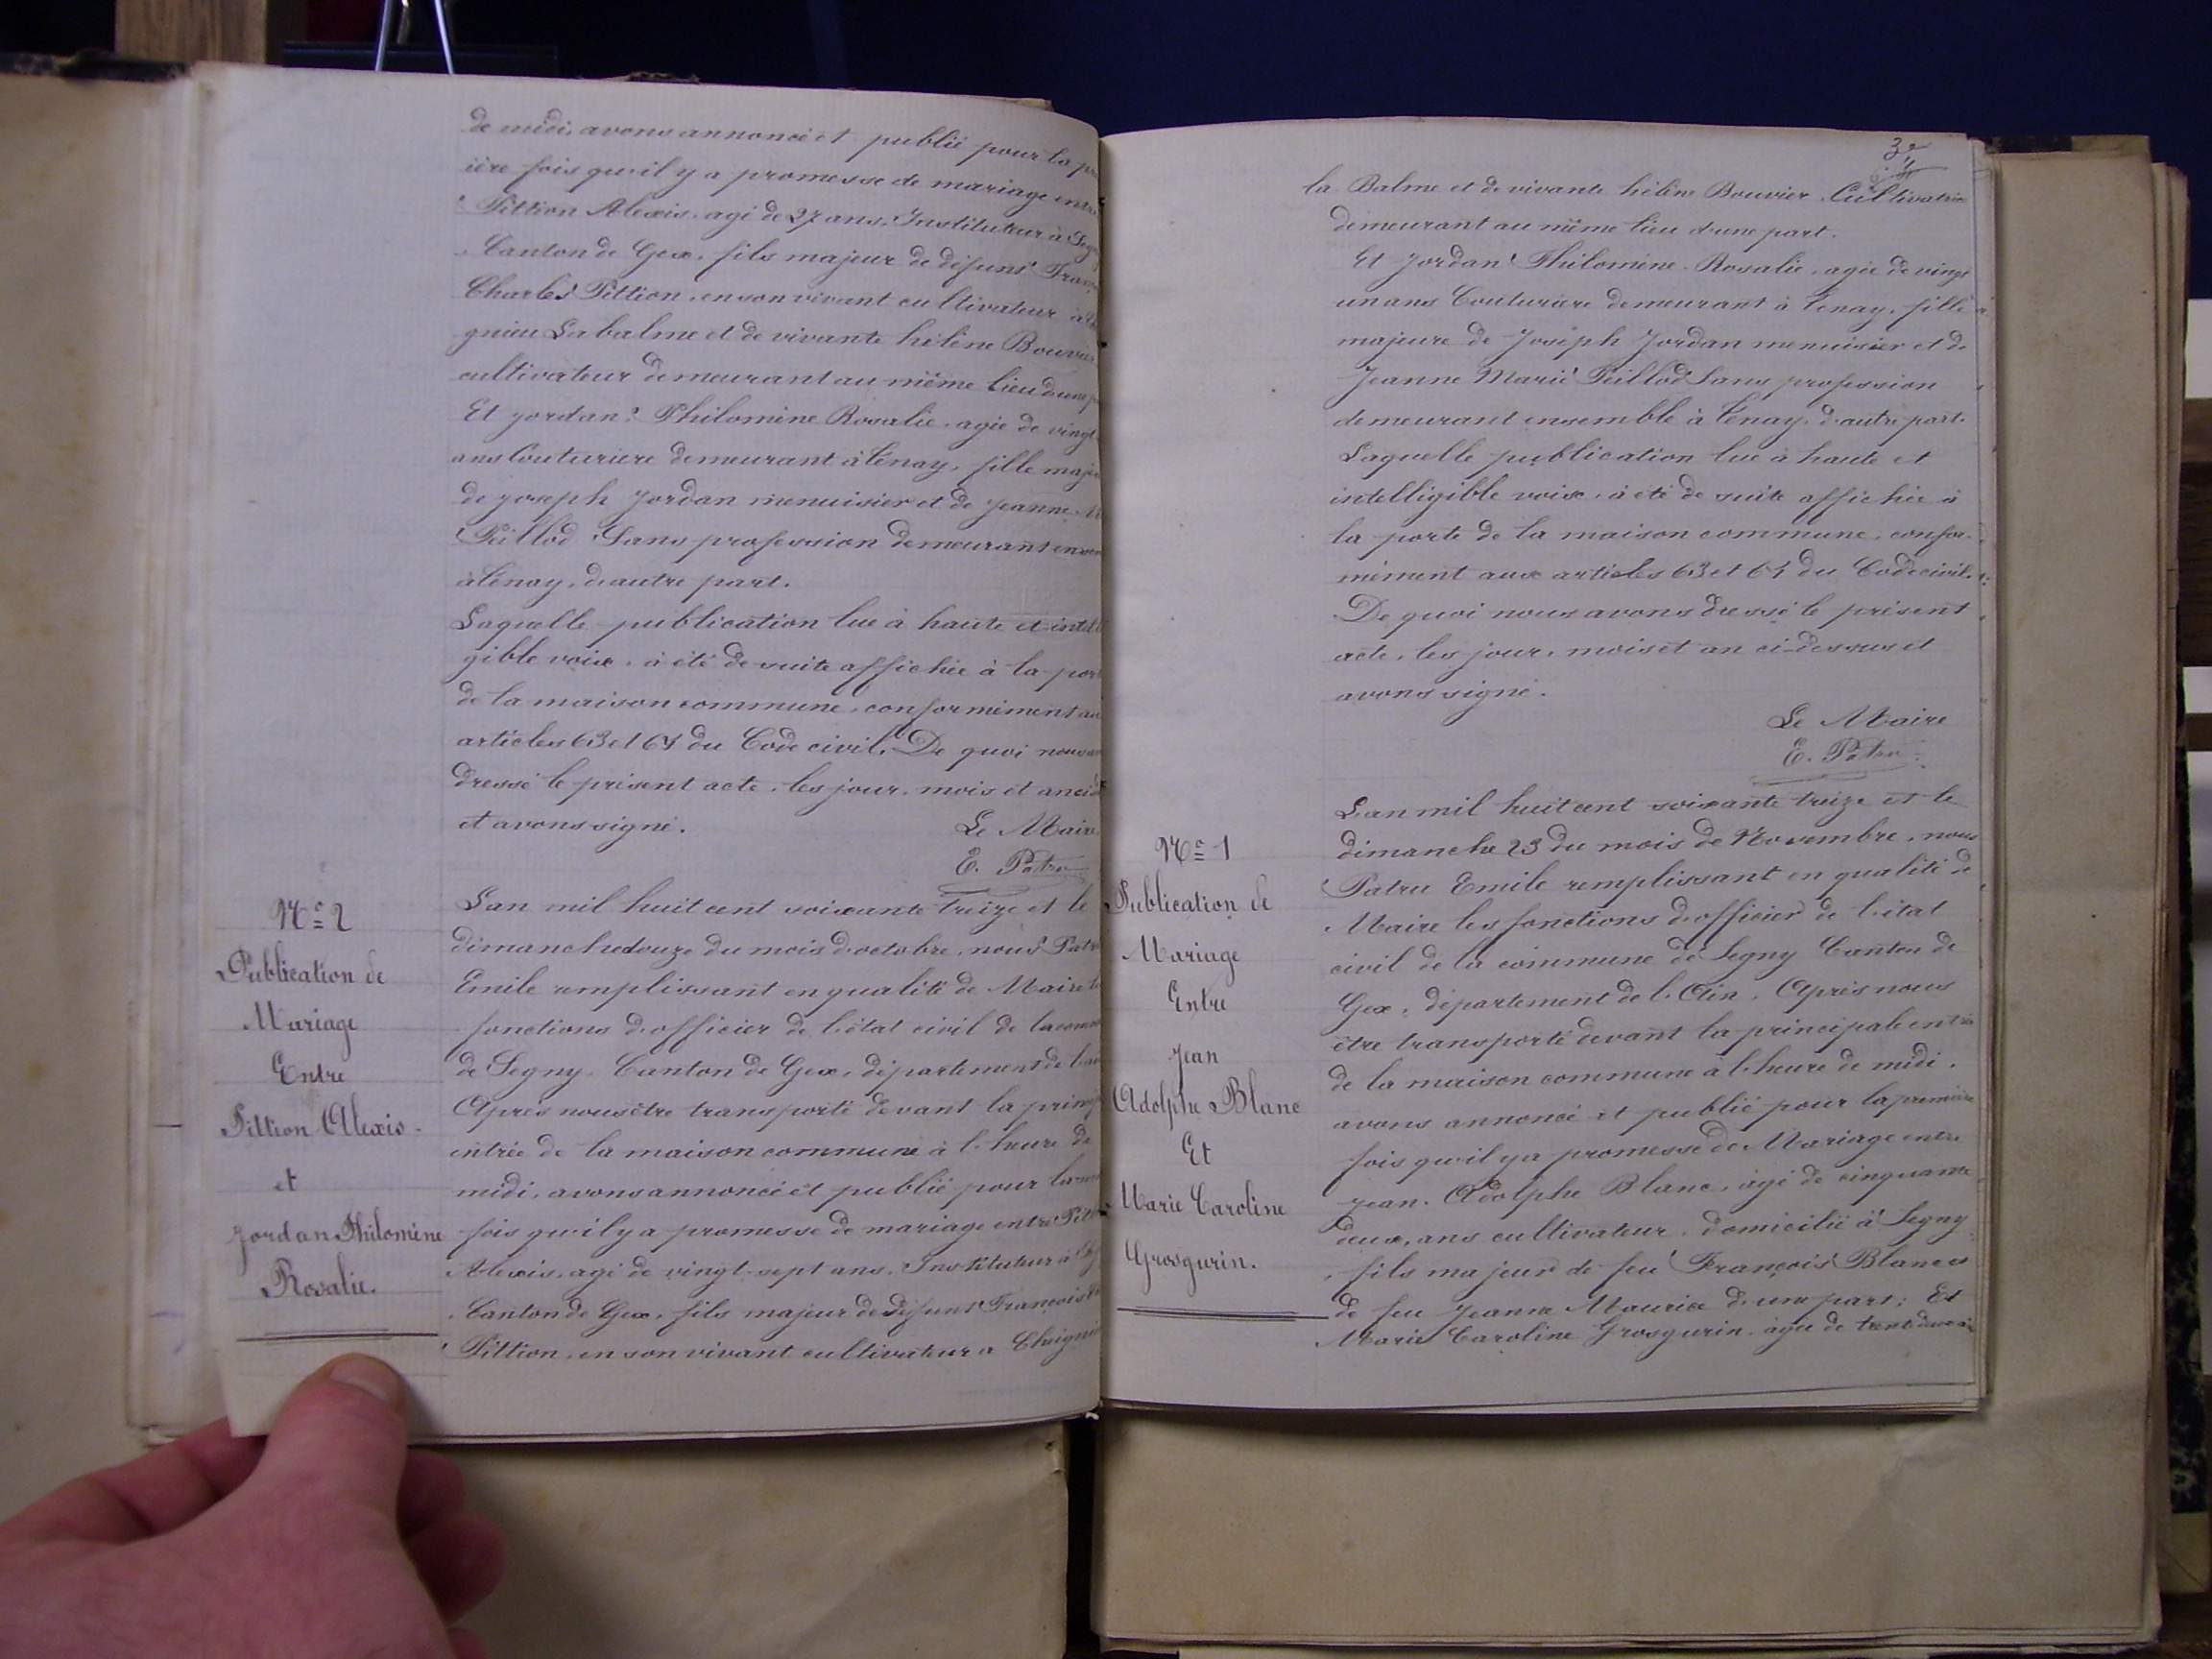 de midi, avons annoncé et publié pour la
ière fois qu'il y a promesse de mariage entre
Pittion Alexis, agé de 27 ans, Instituteur à
Canton de Gex, fils majeur de défunt
Charles Pittion, en son vivant cultivateur à
gnieu Labalme et de vivante hélène Bouvier
cultivateur demeurant au même lieu d'une
Et Jordan Philomine Rosalie, agée de vingt
ans Couturière demeurant à Tenay, fille
de Joseph Jordan menuisier et de Jeanne
Peillod Sans profession demeurant
à Tenay, d'autre part.
Laquelle publication lue à haute et
gible voix, à été de suite affichée à la
de la maison commune, conformément
articles 63 et 64 du Code civil. De quoi nous
dressé le présent acte, les jour, mois et an
et avons signé. Le Maire
E. Patru
N° 2
Publication de
Mariage
Entre
Pittion Alexis
et
Jordan Philomine
Rosalie.
L'an mil huit cent soixante treize et le
dimanche douze du mois d'octobre, nous
Emile remplissant en qualité de Maire
fonctions d'officier de l'état civil de la
de Segny, Canton de Gex, département de
Après nous être transporté devant la
entrée de la maison commune à l'heure de
midi, avons annoncé et publié pour la
fois qu'il y a promesse de mariage entre
Alexis, agé de vingt-sept ans, Instituteur à
Canton de Gex, fils majeur de défunt François
Pittion, en son vivant cultivateur a
la Balme et de vivante hélène Bouvier Cultivatrice
demeurant au même lieu d'une part.
Et Jordan Philomine Rosalie, agée de vingt
un ans Couturière demeurant à Tenay, fille
majeure de Joseph Jordan menuisier et de
Jeanne Marie Peillod Sans profession
demeurant ensemble à Tenay, d'autre part.
Laquelle publication lue à haute et
intelligible voix, à été de suite affichée à
la porte de la maison commune, confor-
mément aux articles 63 et 64 du Code civil.
De quoi nous avons dressé le présent
acte, les jour, mois et an ci-dessus et
avons signé.
Le Maire
E. Patru
N° 1
Publication de
Mariage
Entre
Jean
Adolphe Blanc
Et
Marie Caroline
Grosgurin.
L'an mil huit cent soixante treize et le
dimanche 23 du mois de Novembre, nous
Patru Emile remplissant en qualité de
Maire les fonctions d'officier de l'état
civil de la commune de Segny Canton de
Gex, département de l'Ain. Après nous
être transporté devant la principale entrée
de la maison commune à l'heure de midi,
avons annoncé et publié pour la première
fois qu'il y a promesse de Mariage entre
Jean Adolphe Blanc, âgé de cinquante
deux, ans cultivateur, domicilié à Segny
fils majeur de feu François Blanc et
de feu Jeanne Maurice d'une part; Et
Marie Caroline Grosgurin, âgée de